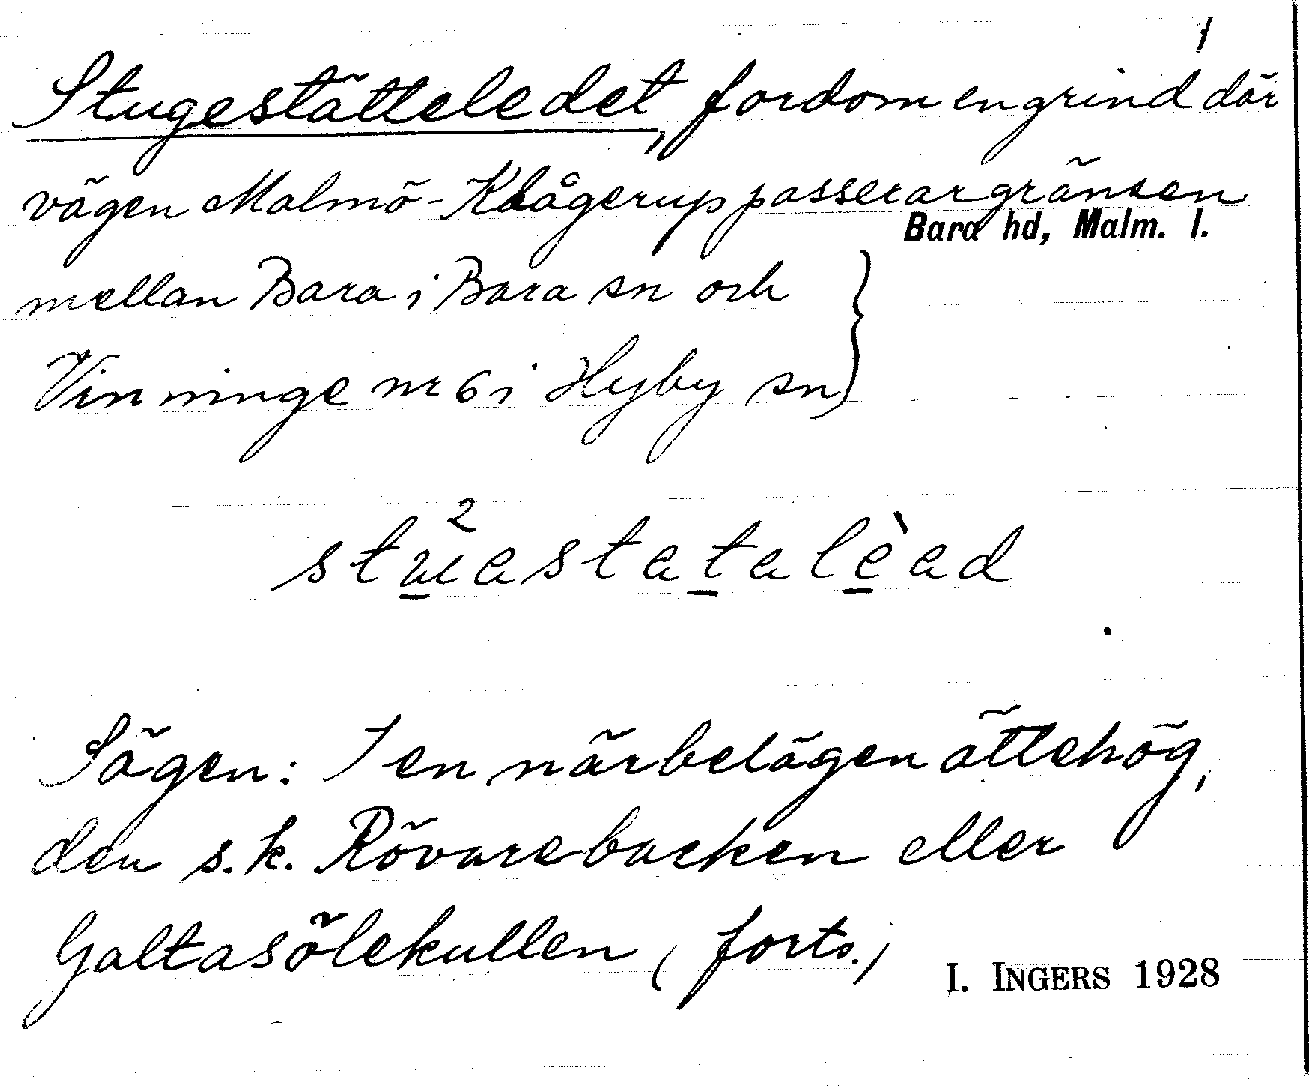 1
Stugestätteledet, fordom en grind där
vägen Malmö-Klågerup passerar gränsen
Bara hd, Malm. l.
mellan Bara i Bara sn och
Vinninge nr 6 i Hyby sn)
2
stuastatalèad
Sägen: I en närbelägen ättehög,
den s.k. Rövarebacken eller
Galtasölekullen (forts.)
I. INGERS 1928